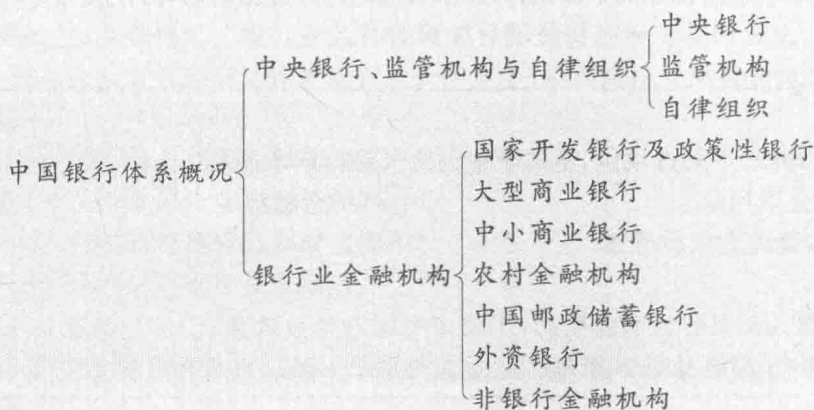 中国银行体系概况
中央银行、监管机构与自律组织
中央银行
监管机构
自律组织
银行业金融机构
国家开发银行及政策性银行
大型商业银行
中小商业银行
农村金融机构
中国邮政储蓄银行
外资银行
非银行金融机构